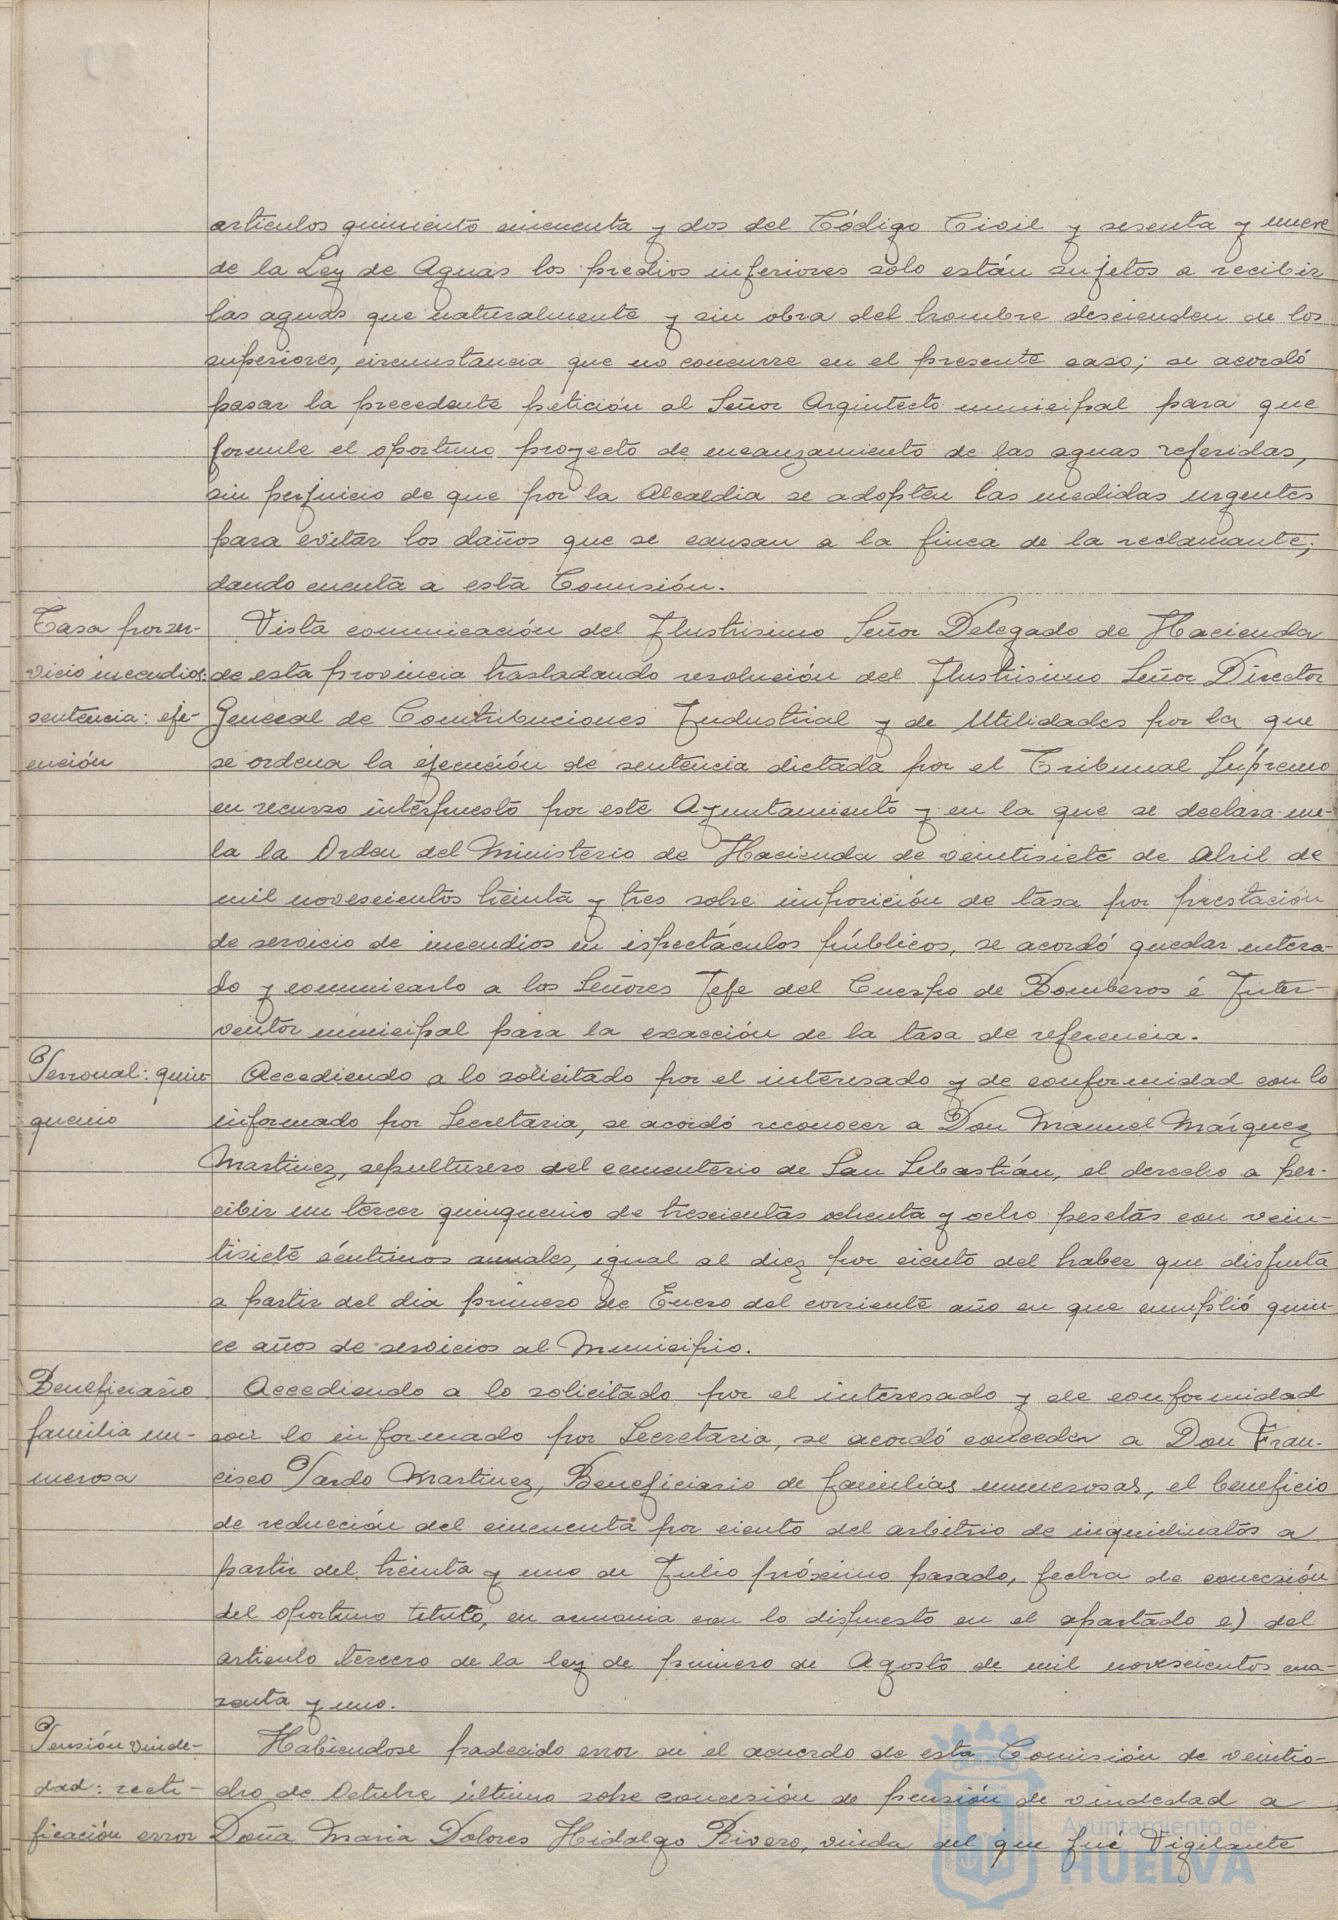 artículos quiniento cincuenta y dos del Código Civil y sesenta y nueve
de la Ley de Aguas los predios inferiores solo están sujetos a recibir
las aguas que naturalmente y sin obra del hombre descienden de los
superiores, circunstancia que no concurre en el presente caso; se acordó
pasar la precedente petición al Señor Arquitecto municipal para que
formule el oportuno proyecto de encauzamiento de las aguas referidas,
sin perjuicio de que por la Alcaldia se adopten las medidas urgentes
para evitar los daños que se causan a la finca de la reclamante;
dando cuenta a esta Comisión.
Tasa por ser-
vicio incendios:
sentencia: eje-
cución
Vista comunicación del Ilustrisimo Señor Delegado de Hacienda
de esta provincia trasladando resolución del Ilustrisimo Señor Director
General de Contribuciones Industrial y de Utilidades por la que
se ordena la ejecución de sentencia dictada por el Tribunal Súpremo
en recurso interpuesto por este Ayuntamiento y en la que se declara nu-
la la Orden del Ministerio de Hacienda de veintisiete de Abril de
mil novescientos treinta y tres sobre imposición de tasa por prestación
de servicio de incendios en espectáculos públicos, se acordó quedar entera-
do y comunicarlo a los Señores Jefe del Cuerpo de Bomberos é Inter-
ventor municipal para la exacción de la tasa de referencia.
Personal: quin-
quenio
Accediendo a lo solicitado por el interesado y de conformidad con lo
informado por Secretaria, se acordó reconocer a Don Manuel Márquez
Martinez, sepulturero del cementerio de San Sebastián, el derecho a per-
cibir un tercer quinquenio de trescientas ochenta y ocho pesetas con vein-
tisiete céntimos anuales, igual al diez por ciento del haber que disfruta
a partir del dia primero de Enero del corriente año en que cumplió quin-
ce años de servicios al Municipio.
Beneficiario
familia nu-
merosa
Accediendo a lo solicitado por el interesado y de conformidad
con lo informado por Secretaria, se acordó conceder a Don Fran-
cisco Pardo Martinez, Beneficiario de familias numerosas, el beneficio
de reducción del cincuenta por ciento del arbitrio de inquilinatos a
partir del treinta y uno de Julio próximo pasado, fecha de concesión
del oportuno titulo, en armonia con lo dispuesto en el apartado e) del
articulo tercero de la ley de primero de Agosto de mil novescientos cua-
renta y uno.
Pensión viude-
dad: recti-
ficación error
Habiendose padecido error en el acuerdo de esta Comisión de veintio-
cho de Octubre último sobre concesión de pensión de viudedad a
Doña Maria Dolores Hidalgo Rivero, viuda del que fué Vigilante
Ayuntamiento de
HUELVA